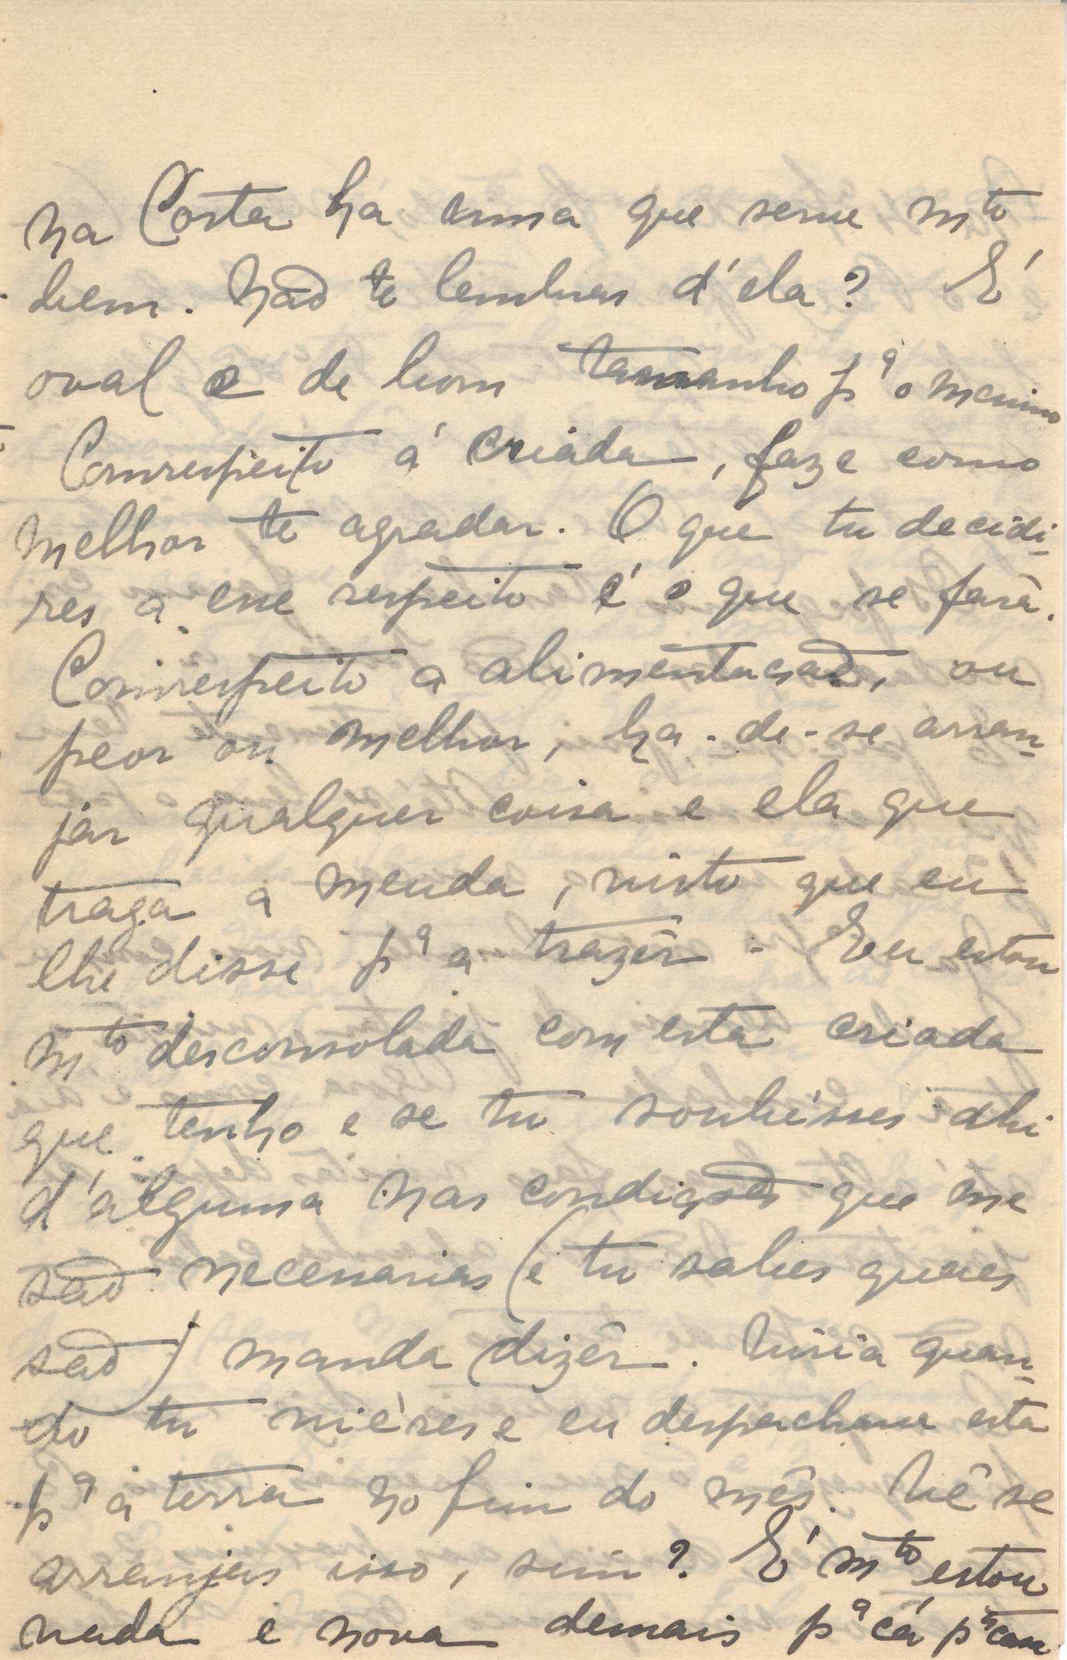 na Costa ha uma que serve mto
bem. Não te lembras d'ela? É
oval e de bom tamanho pª o menino
Comrespeito á criada, faze como
melhor te agradar. O que tu decidi-
res a esse respeito é o que se fará.
Comrespeito a alimentação, ou
peor ou melhor, ha-de-se arran-
jar qualquer coisa e ela que
traga a meuda, visto que eu
lhe disse pª a trazêr. Eu estou
mto desconsolada com esta criada
que tenho e se tu soubésses ahi
d'alguma nas condições que me
são necessarias (e tu sabes quaes
são) manda dizêr. Viria quan-
do tu viéres e eu despachava esta
pª a terra no fim do mês. Vê se
arranjas isso, sim? É mto estou
vada e nova demais pª cá pª